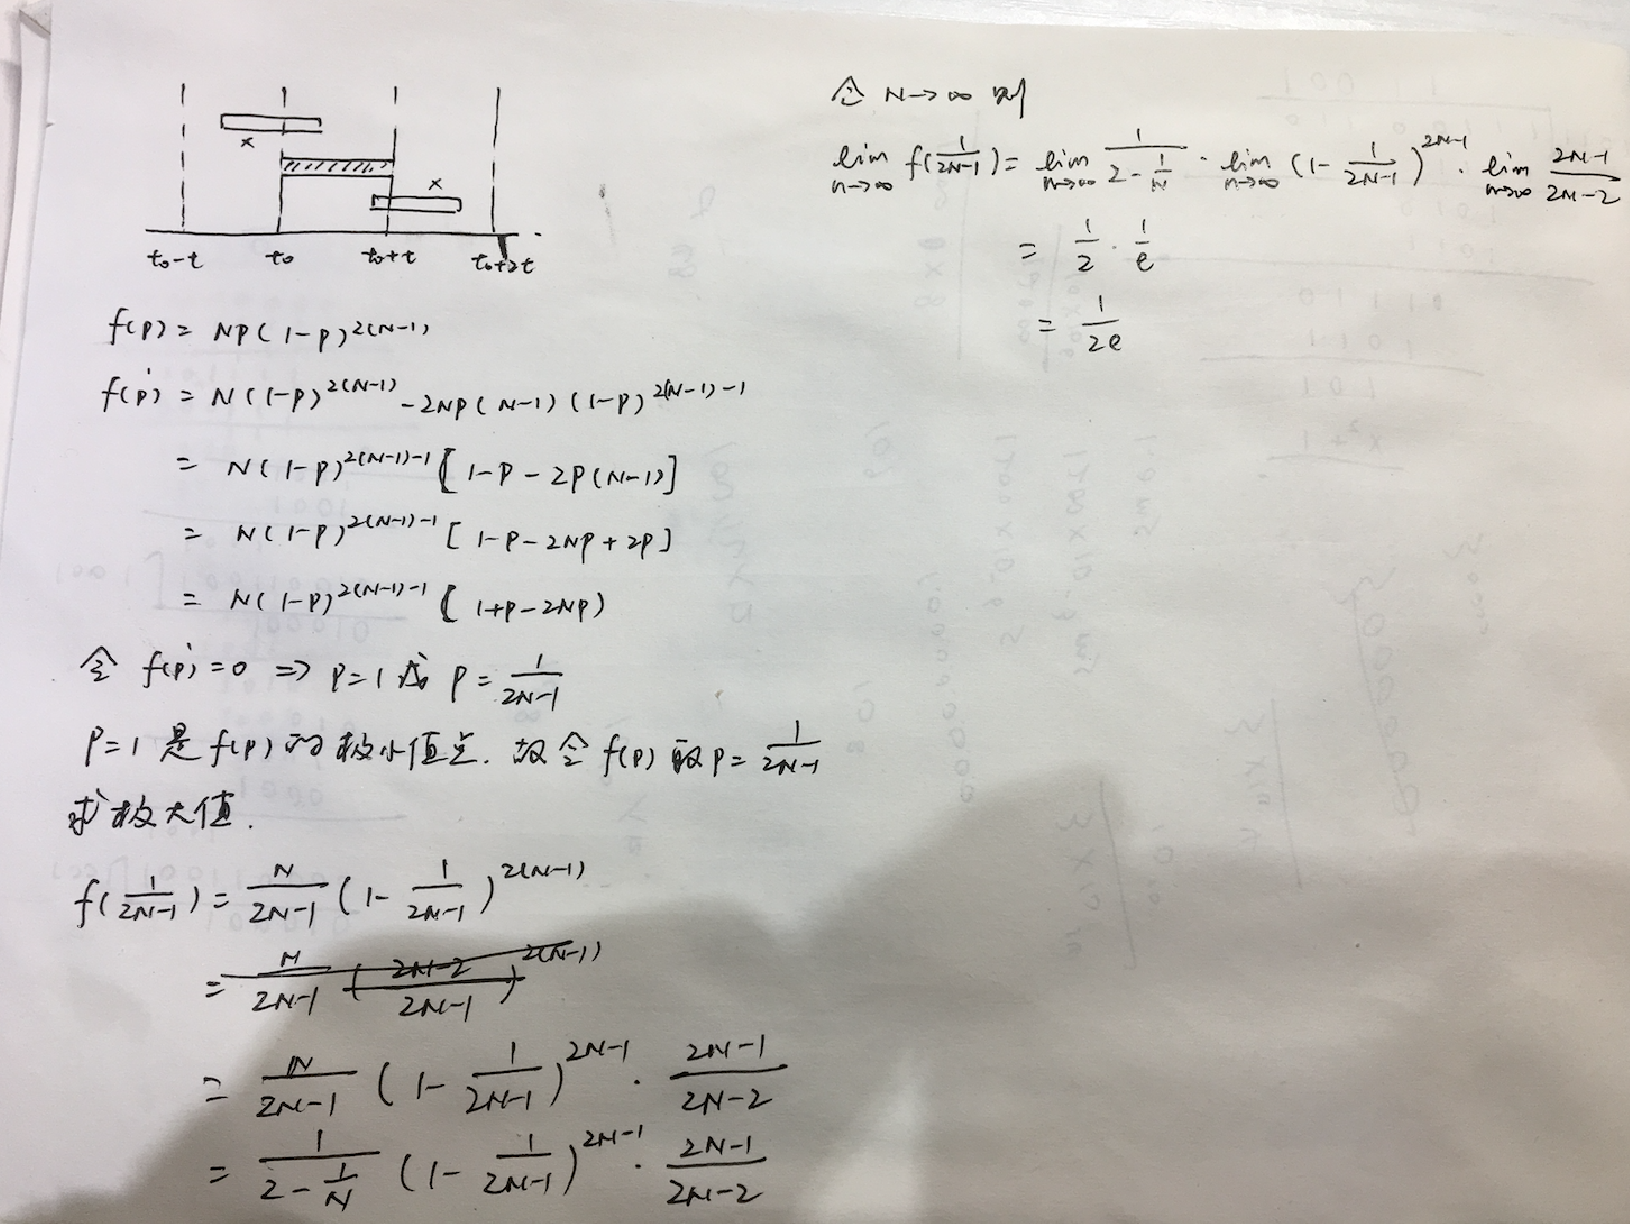 x
x
t₀-t t₀ t₀+t t₀+2t
f(p) = NP(1-P)^{2(N-1)}
f(p)' = N(1-P)^{2(N-1)} - 2NP(N-1)(1-P)^{2(N-1)-1}
= N(1-P)^{2(N-1)-1} [1-P-2P(N-1)]
= N(1-P)^{2(N-1)-1} [1-P-2NP+2P]
= N(1-P)^{2(N-1)-1} [1+P-2NP)
令 f(p)'=0 => P=1 或 P=\frac{1}{2N-1}
P=1 是 f(p) 的极小值点. 故令 f(p) 取 P=\frac{1}{2N-1}
求极大值.
f(\frac{1}{2N-1}) = \frac{N}{2N-1} (1-\frac{1}{2N-1})^{2(N-1)}
= \frac{N}{2N-1} (\frac{2N-2}{2N-1})^{2(N-1)}
= \frac{N}{2N-1} (1-\frac{1}{2N-1})^{2N-1} · \frac{2N-1}{2N-2}
= \frac{1}{2-\frac{1}{N}} (1-\frac{1}{2N-1})^{2N-1} · \frac{2N-1}{2N-2}
令 N→∞ 则
\lim_{n→∞} f(\frac{1}{2N-1}) = \lim_{n→∞} \frac{1}{2-\frac{1}{N}} · \lim_{n→∞} (1-\frac{1}{2N-1})^{2N-1} · \lim_{n→∞} \frac{2N-1}{2N-2}
= \frac{1}{2} · \frac{1}{e}
= \frac{1}{2e}